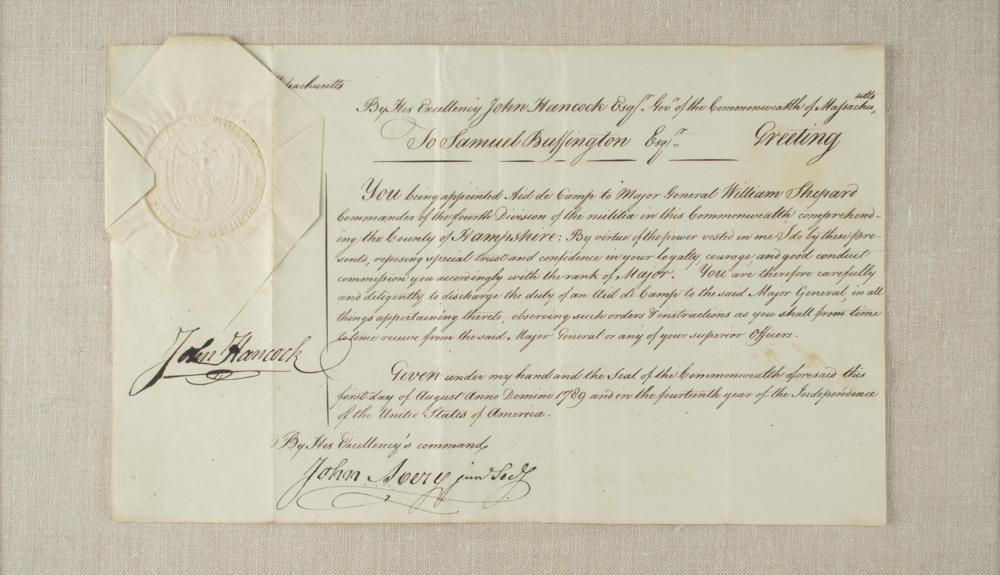 By His Excellency John Hancock Esqr. Govr. of the Commonwealth of Massachusetts
To Samuel Buffington Esqr. Greeting
You being appointed Aid de Camp to Major General William Shepard
Commander of the fourth Division of the militia in this Commonwealth comprehend-
ing the County of Hampshire: By virtue of the power vested in me I do by these pre-
sents, reposing special trust and confidence in your loyalty, courage, and good conduct
commission you accordingly with the rank of Major. You are therefore carefully
and diligently to discharge the duty of an Aid de Camp to the said Major General, in all
things appertaining thereto, observing such orders & instructions as you shall from time
to time receive from the said Major General or any of your superior Officers.
Given under my hand and the Seal of the Commonwealth aforesaid this
first day of August Anno Domino 1789 and in the fourteenth year of the Independence
of the United States of America.
John Hancock
By His Excellency's command,
John Avery junr Secy